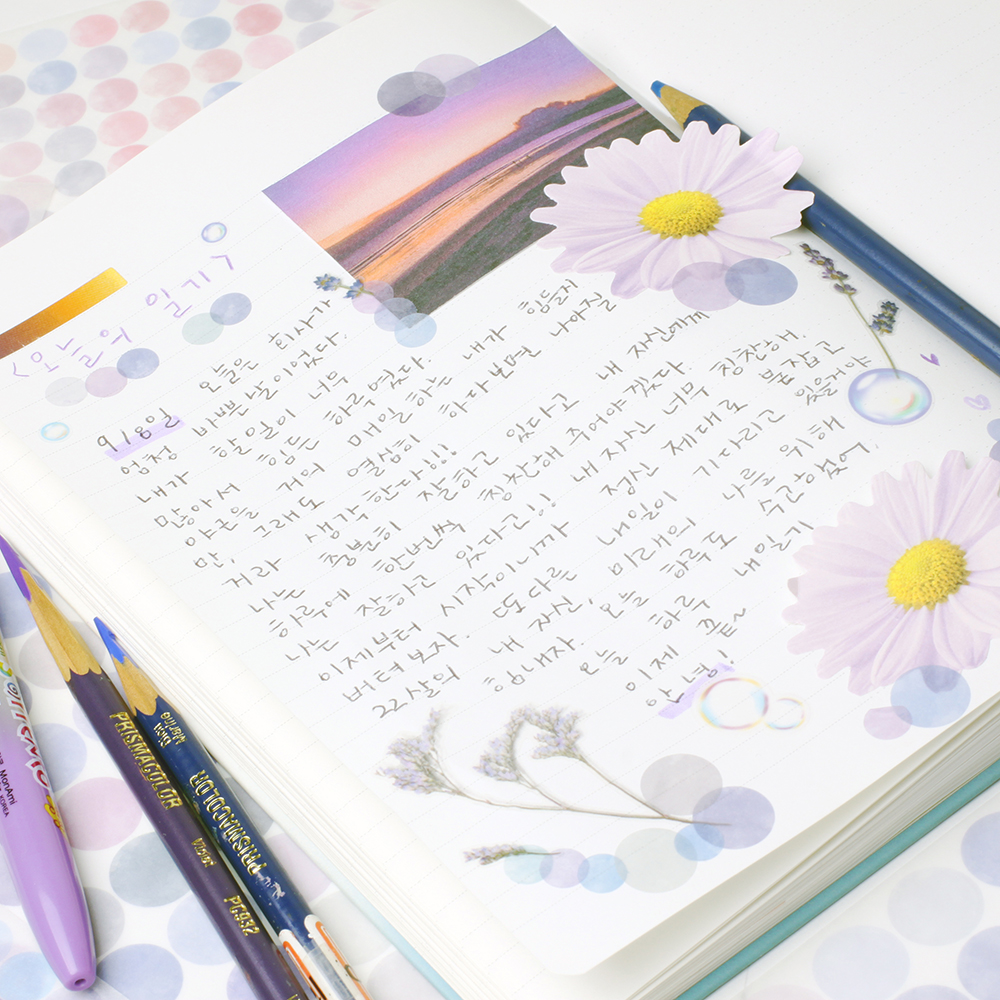 <오늘의 일기>
9/8일 오늘은 회사가
엄청 바쁜날이었다.
내가 할일이 너무
많아서 힘든 하루였다.
야근을 거의 매일하는 내가 힘들지
만, 그래도 열심히 하다보면 나아질
거라 생각한다잉!
나는 충분히 잘하고 있다고 내 자신에게
하루에 한번씩 칭찬해 주어야겠다.
나는 잘하고 있다고!! 내 자신 너무 칭찬해.
이제부터 시작이니까 정신 제대로 붙잡고
버텨보자. 또다른 내일이 기다리고 있을거야
22살의 내 자신, 미래의 나를 위해
힘내자. 오늘 하루도
오늘 하루 내일기
이제 끝~
안녕!
PRISMACOLOR Violet PC932
PRISMACOLOR
MonAmi